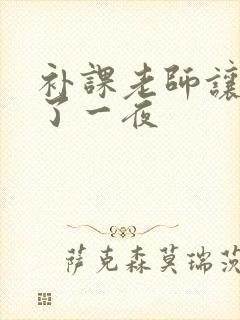 补課老師讓
了一夜
萨克森莫瑞茨